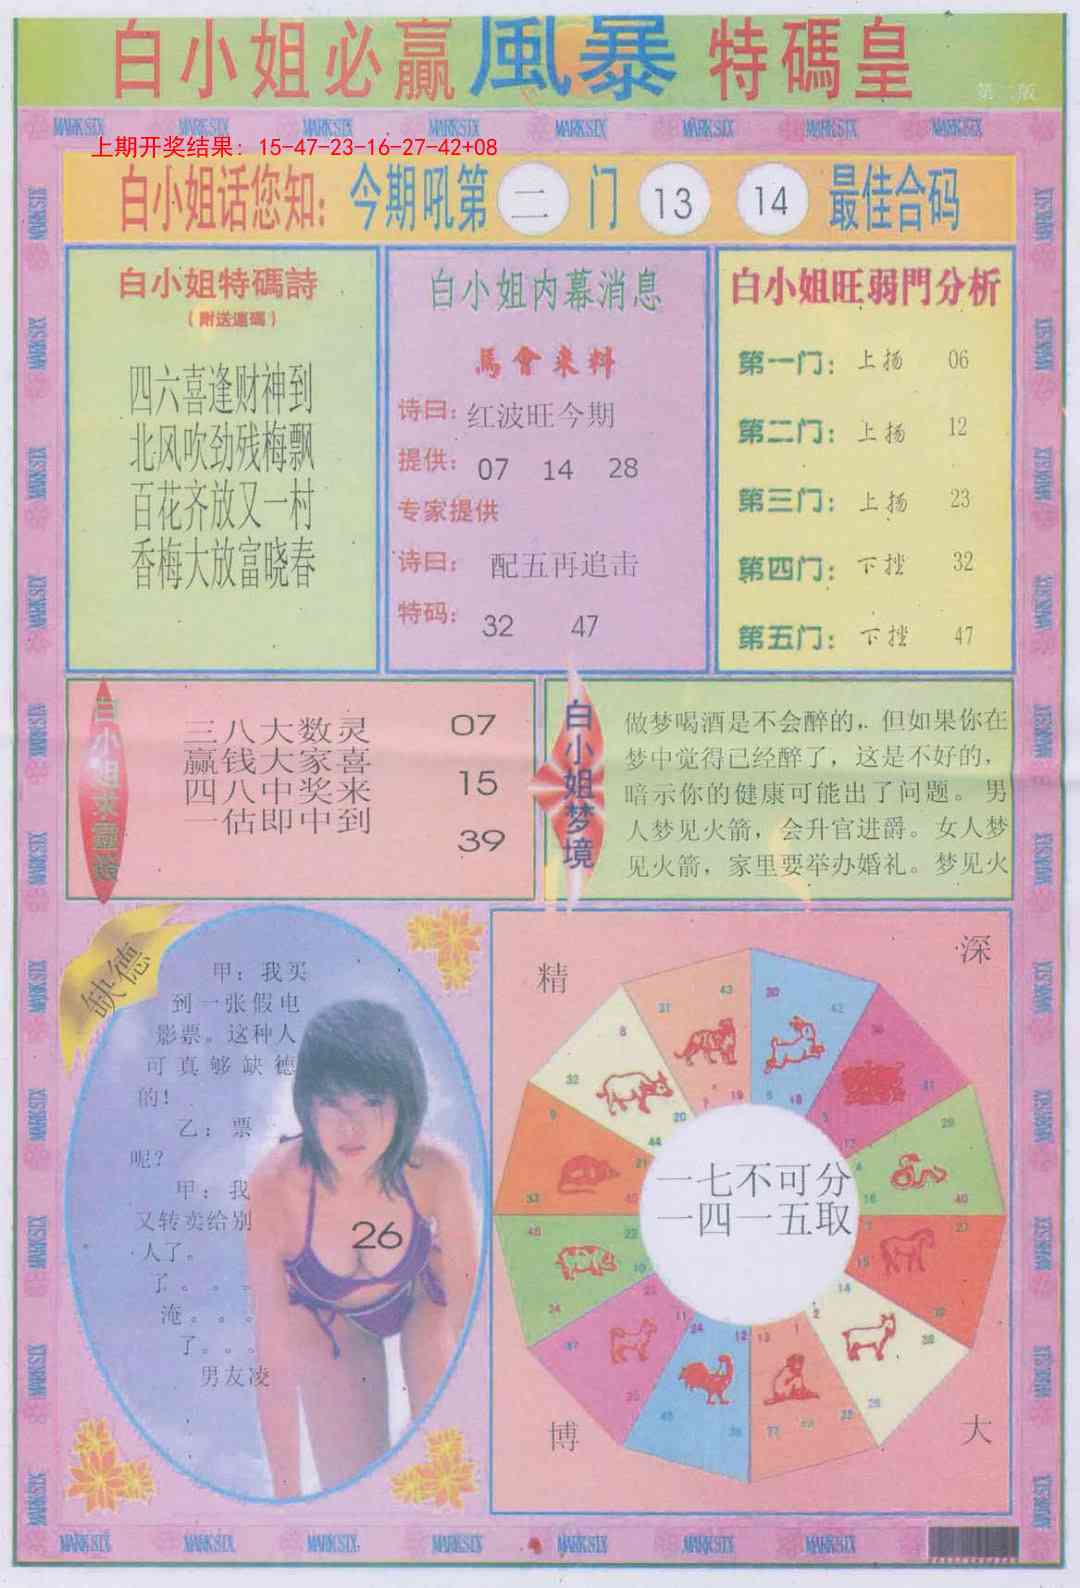 白小姐必赢風暴特碼皇
第二版
MARK SIX MARK SIX MARK SIX MARK SIX MARK SIX MARK SIX MARK SIX MARK SIX
上期开奖结果: 15-47-23-16-27-42+08
白小姐话您知: 今期吼第 二 门 13 14 最佳合码
白小姐特碼詩
(附送連碼)
四六喜逢财神到
北风吹劲残梅飘
百花齐放又一村
香梅大放富晓春
白小姐内幕消息
馬會来料
诗曰: 红波旺今期
提供: 07 14 28
专家提供
诗曰: 配五再追击
特码: 32 47
白小姐旺弱門分析
第一门: 上扬 06
第二门: 上扬 12
第三门: 上扬 23
第四门: 下挫 32
第五门: 下挫 47
三八大数灵 07
赢钱大家喜
四八中奖来 15
一估即中到 39
白小姐梦境
做梦喝酒是不会醉的,. 但如果你在
梦中觉得已经醉了，这是不好的,
暗示你的健康可能出了问题。男
人梦见火箭，会升官进爵。女人梦
见火箭，家里要举办婚礼。梦见火
缺德
甲: 我买
到一张假电
影票。这种人
可真够缺德
的!
乙: 票
呢?
甲: 我
又转卖给别
人了。
了。。。
淹。。。
了。。。
男友凌
26
精 深
一七不可分
一四一五取
博 大
MARK SIX MARK SIX MARK SIX MARK SIX MARK SIX MARK SIX MARK SIX